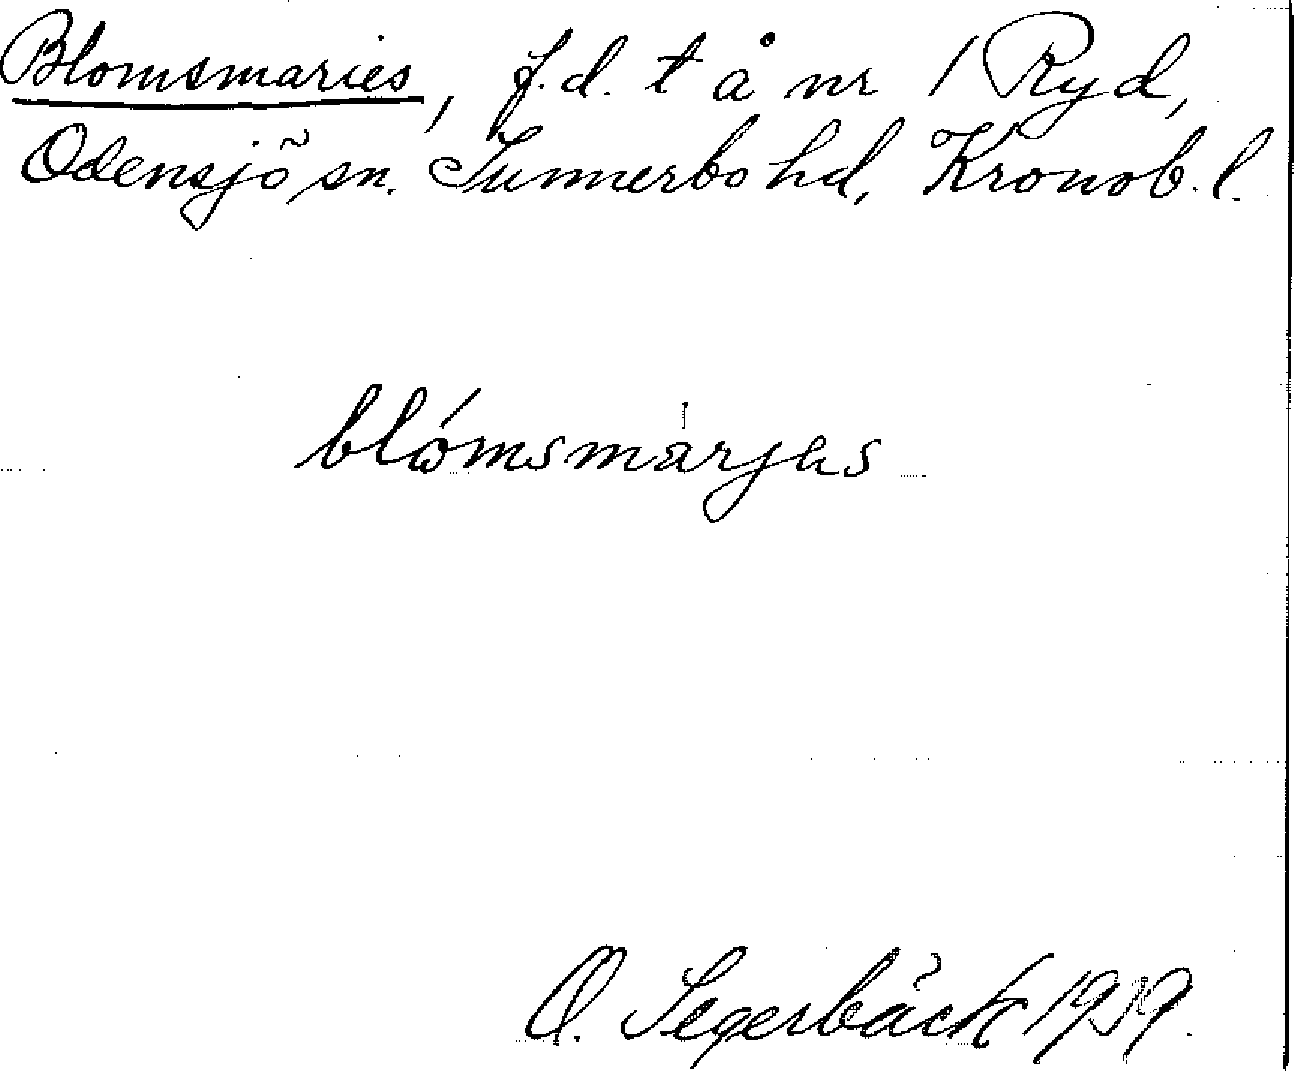 Blomsmaries, f.d. t å nr 1 Ryd,
Odensjö sn. Sunnerbo hd, Kronob. l.
blómsmàrjas
O. Segerbäck 1939.